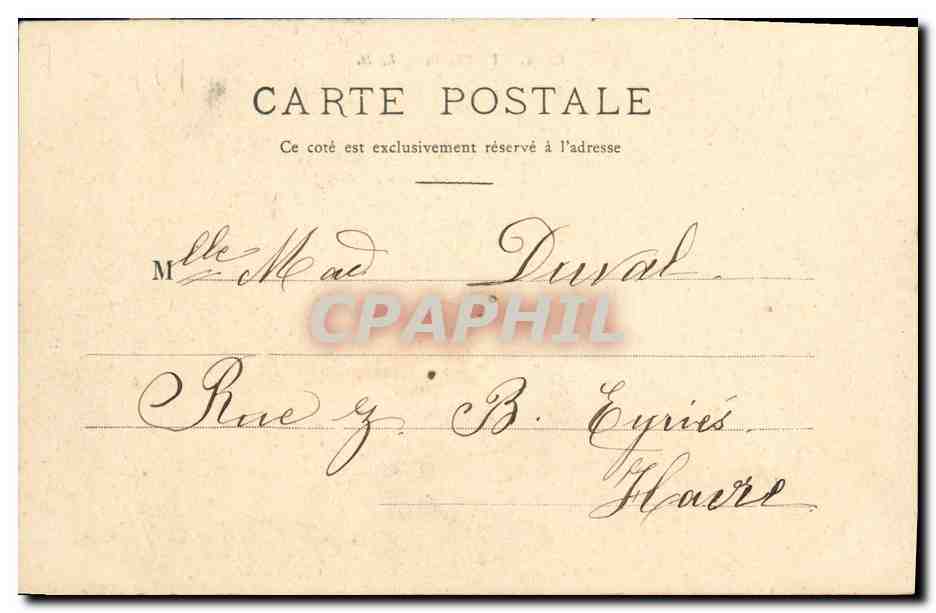 CARTE POSTALE
Ce coté est exclusivement réservé à l'adresse
Mlle Mad Duval.
CPAPHIL
Rue B. Eyriés.
Havre